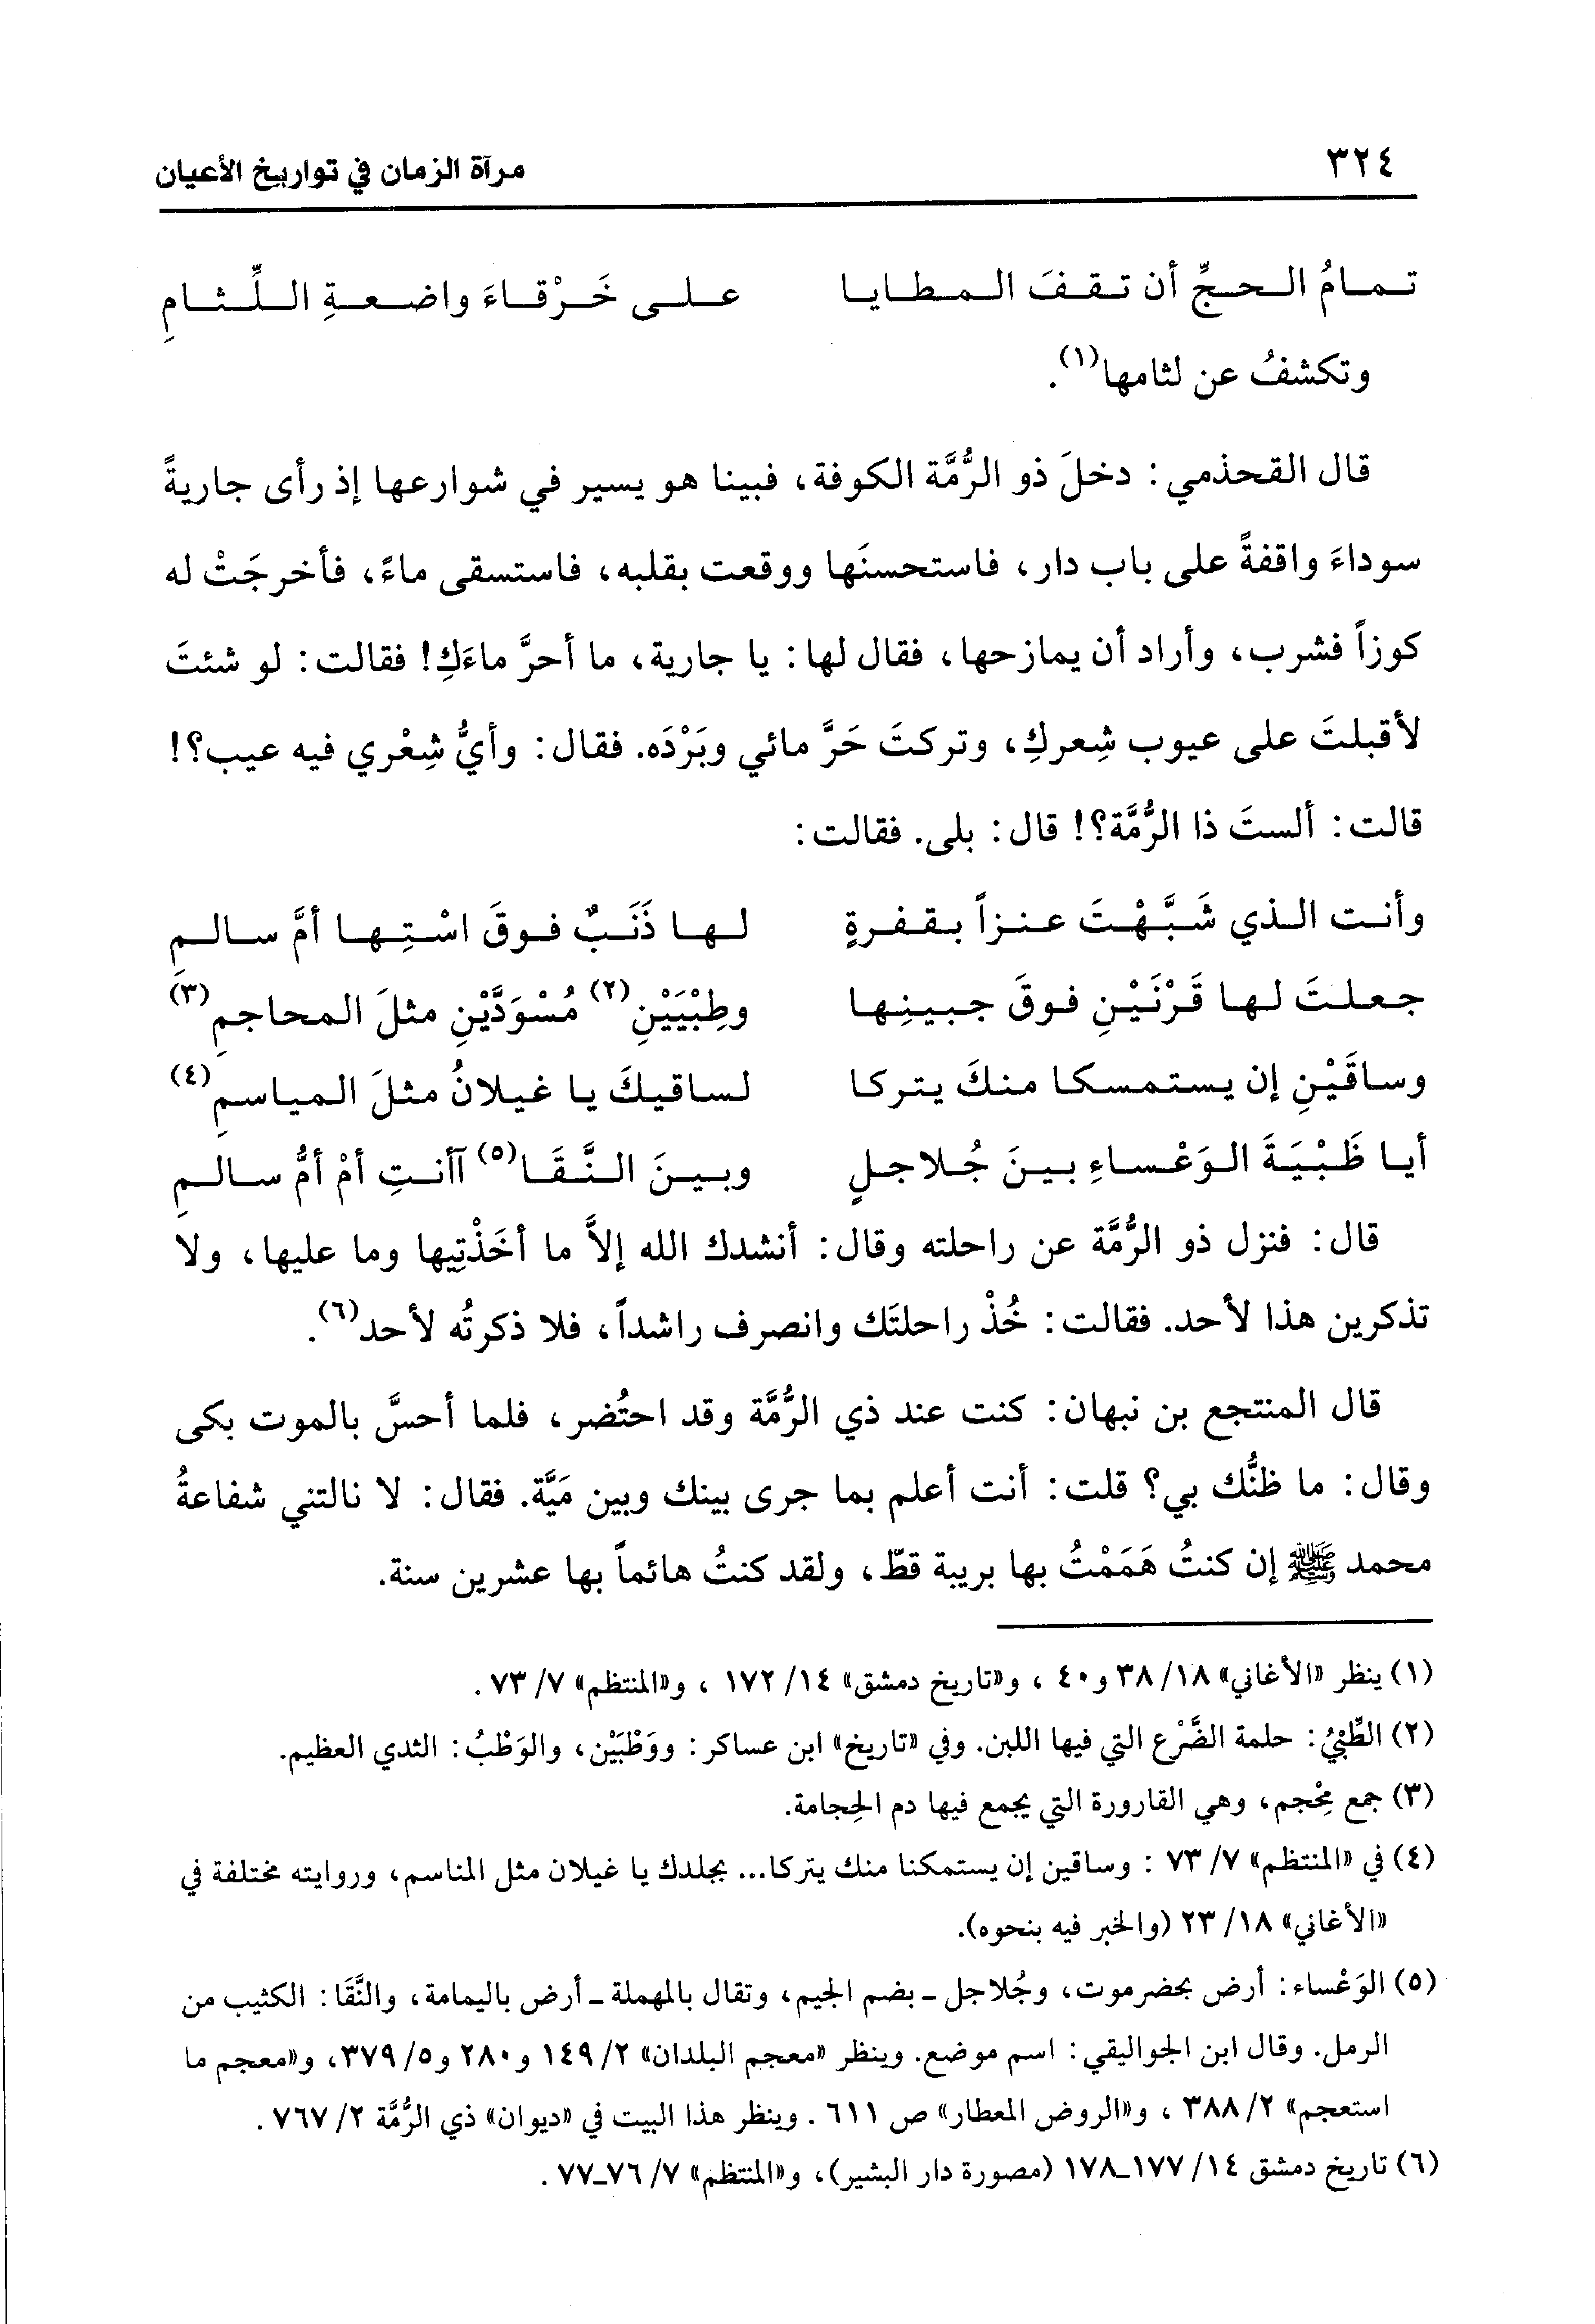 ٣٢٤ مرآة الزمان في تواريخ الأعيان
تمامُ الحجِّ أن تقفَ المطايا على خَرْقاءَ واضعةِ اللِّثامِ
وتكشفُ عن لثامها(١).
قال القحذمي: دخلَ ذو الرُّمَّة الكوفة، فبينا هو يسير في شوارعها إذ رأى جاريةً
سوداءَ واقفةً على باب دار، فاستحسنَها ووقعت بقلبه، فاستسقى ماءً، فأخرجَتْ له
كوزاً فشرب، وأراد أن يمازحها، فقال لها: يا جارية، ما أحرَّ ماءَكِ! فقالت: لو شئتَ
لأقبلتَ على عيوب شِعركِ، وتركتَ حَرَّ مائي وبَرْدَه. فقال: وأيُّ شِعْري فيه عيب؟!
قالت: ألستَ ذا الرُّمَّة؟! قال: بلى. فقالت:
وأنت الذي شَبَّهْتَ عنزاً بقفرةٍ لها ذَنَبٌ فوقَ اسْتِها أمَّ سالمِ
جعلتَ لها قَرْنَيْنِ فوقَ جبينِها وطِبْيَيْنِ(٢) مُسْوَدَّيْنِ مثلَ المحاجمِ(٣)
وساقَيْنِ إن يستمسكا منكَ يتركا لساقيكَ يا غيلانُ مثلَ المياسمِ(٤)
أيا ظَبْيَةَ الوَعْساءِ بينَ جُلاجلٍ وبينَ النَّقَا(٥) آأنتِ أمْ أمُّ سالمِ
قال: فنزل ذو الرُّمَّة عن راحلته وقال: أنشدك الله إلاَّ ما أخَذْتِيها وما عليها، ولا
تذكرين هذا لأحد. فقالت: خُذْ راحلتَك وانصرف راشداً، فلا ذكرتُه لأحد(٦).
قال المنتجع بن نبهان: كنت عند ذي الرُّمَّة وقد احتُضر، فلما أحسَّ بالموت بكى
وقال: ما ظنُّك بي؟ قلت: أنت أعلم بما جرى بينك وبين مَيَّة. فقال: لا نالتني شفاعةُ
محمد ﷺ إن كنتُ هَمَمْتُ بها بريبة قطّ، ولقد كنتُ هائماً بها عشرين سنة.
(١) ينظر «الأغاني» ١٨/ ٣٨ و٤٠ ، و«تاريخ دمشق» ١٤/ ١٧٢ ، و«المنتظم» ٧/ ٧٣ .
(٢) الطِّبْيُ: حلمة الضَّرْع التي فيها اللبن. وفي «تاريخ» ابن عساكر: ووَطْبَيْن، والوَطْبُ: الثدي العظيم.
(٣) جمع مِحْجم، وهي القارورة التي يجمع فيها دم الحِجامة.
(٤) في «المنتظم» ٧/ ٧٣ : وساقين إن يستمكنا منك يتركا... بجلدك يا غيلان مثل المناسم، وروايته مختلفة في
«الأغاني» ١٨/ ٢٣ (والخبر فيه بنحوه).
(٥) الوَعْساء: أرض بحضرموت، وجُلاجل - بضم الجيم، وتقال بالمهملة - أرض باليمامة، والنَّقَا: الكثيب من
الرمل. وقال ابن الجواليقي: اسم موضع. وينظر «معجم البلدان» ٢/ ١٤٩ و٢٨٠ و٥/ ٣٧٩، و«معجم ما
استعجم» ٢/ ٣٨٨ ، و«الروض المعطار» ص ٦١١ . وينظر هذا البيت في «ديوان» ذي الرُّمَّة ٢/ ٧٦٧ .
(٦) تاريخ دمشق ١٤/ ١٧٧-١٧٨ (مصورة دار البشير)، و«المنتظم» ٧/ ٧٦-٧٧ .